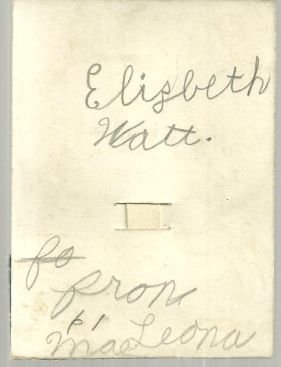 Elisbeth
Watt.
fo
From
Ma Leona